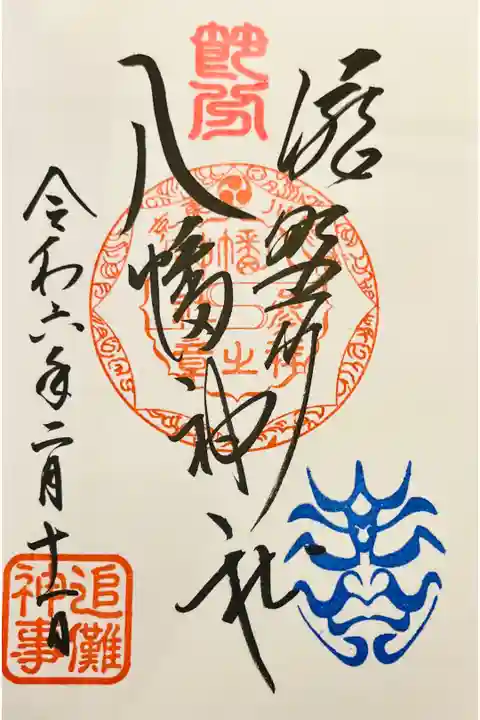 節分
滝野川
八幡神社
令和六年二月十一日
追儺
神事